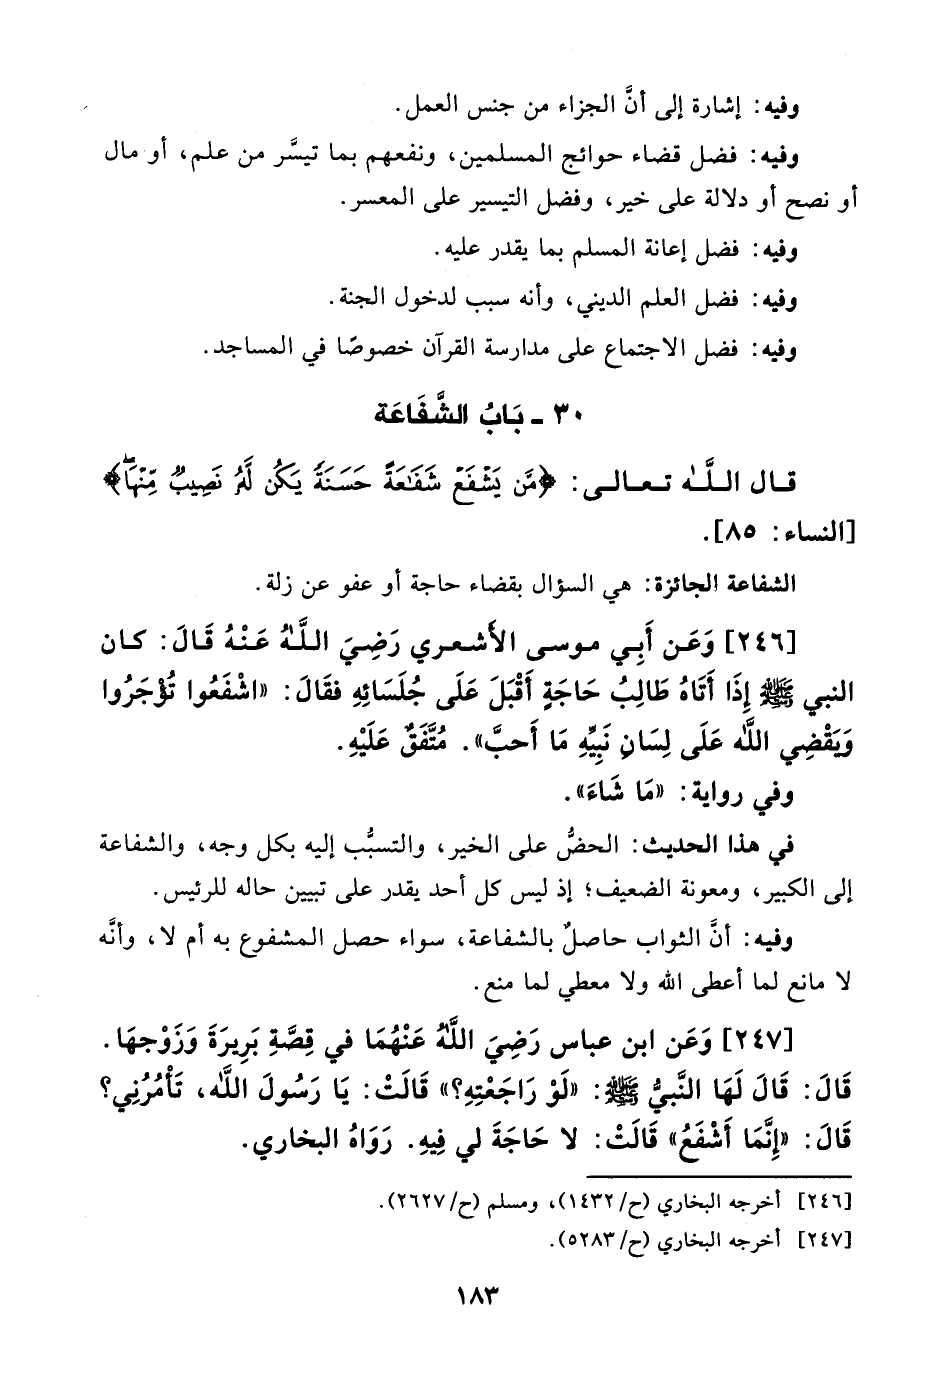 وفيه: إشارة إلى أنَّ الجزاء من جنس العمل.
وفيه: فضل قضاء حوائج المسلمين، ونفعهم بما تيسَّر من علم، أو مال
أو نصح أو دلالة على خير، وفضل التيسير على المعسر.
وفيه: فضل إعانة المسلم بما يقدر عليه.
وفيه: فضل العلم الديني، وأنه سبب لدخول الجنة.
وفيه: فضل الاجتماع على مدارسة القرآن خصوصًا في المساجد.
٣٠ - بَابُ الشَّفَاعَة
قال اللَّه تعالى: ﴿مَّن يَشْفَعْ شَفَٰعَةً حَسَنَةً يَكُن لَّهُۥ نَصِيبٌ مِّنْهَاۖ﴾
[النساء: ٨٥].
الشفاعة الجائزة: هي السؤال بقضاء حاجة أو عفو عن زلة.
[٢٤٦] وَعَن أَبِي موسى الأَشعري رَضِيَ اللَّهُ عَنْهُ قَالَ: كان
النبي ﷺ إِذَا أَتَاهُ طَالِبُ حَاجَةٍ أَقْبَلَ عَلَى جُلَسَائِهِ فقَالَ: «اشْفَعُوا تُؤْجَرُوا
وَيَقْضِي اللَّه عَلَى لِسَانِ نَبِيِّهِ مَا أَحبَّ». مُتَّفَقٌ عَلَيْهِ.
وفي رواية: «مَا شَاءَ».
في هذا الحديث: الحضُّ على الخير، والتسبُّب إليه بكل وجه، والشفاعة
إلى الكبير، ومعونة الضعيف؛ إذ ليس كل أحد يقدر على تبيين حاله للرئيس.
وفيه: أنَّ الثواب حاصلٌ بالشفاعة، سواء حصل المشفوع به أم لا، وأنَّه
لا مانع لما أعطى الله ولا معطي لما منع.
[٢٤٧] وَعَن ابن عباس رَضِيَ اللَّهُ عَنْهُمَا في قِصَّةِ بَرِيرَةَ وَزَوْجهَا.
قَالَ: قَالَ لَهَا النَّبيُّ ﷺ: «لَوْ رَاجَعْتِهِ؟» قَالَتْ: يَا رَسُولَ اللَّه، تَأْمُرُنِي؟
قَالَ: «إِنَّمَا أَشْفَعُ» قَالَتْ: لا حَاجَةَ لي فِيهِ. رَوَاهُ البخاري.
[٢٤٦] أخرجه البخاري (ح/١٤٣٢)، ومسلم (ح/٢٦٢٧).
[٢٤٧] أخرجه البخاري (ح/٥٢٨٣).
١٨٣